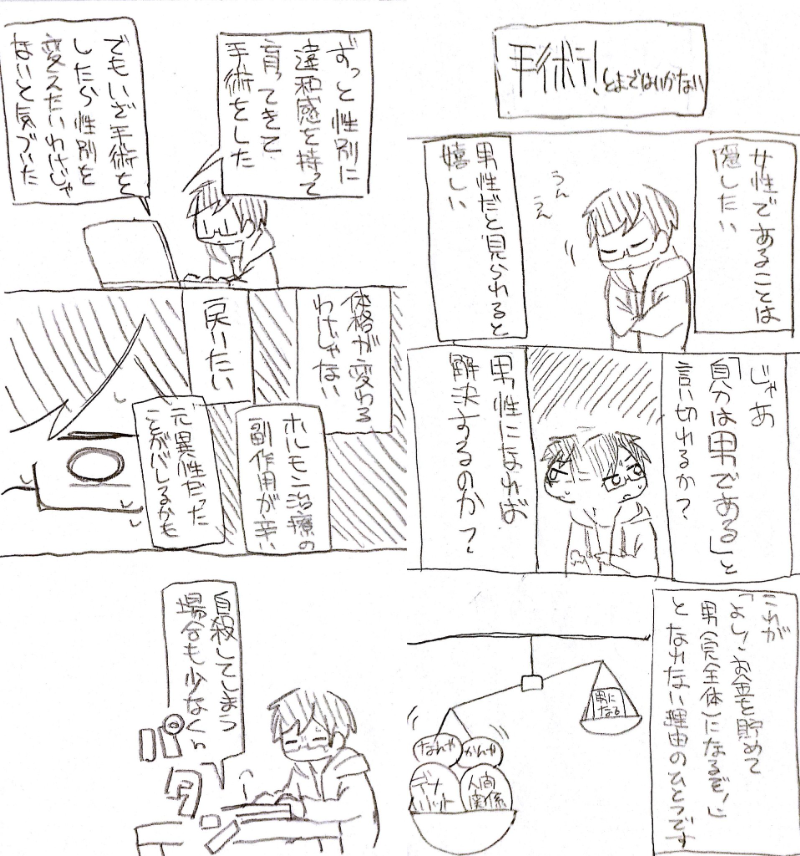 手術!とまではいかない
女性であることは
隠したい
うん
うん
男性だと見られると
嬉しい
じゃあ
「自分は男である」と
言い切れるか?
男性になれば
解決するのか?
これが
「よし!お金を貯めて
男(完全体)になるぞ!」
となれない理由のひとつです
男に
なる
なんや
かんや
デメ
リット
人間
関係
ずっと性別に
違和感を持って
育ってきて
手術をした
でもいざ手術を
したら性別を
変えたいわけじゃ
ないと気づいた
体格が変わる
わけじゃない
戻りたい
ホルモン治療の
副作用が辛い
元異性だった
ことがバレるかも
自殺してしまう
場合も少なくない